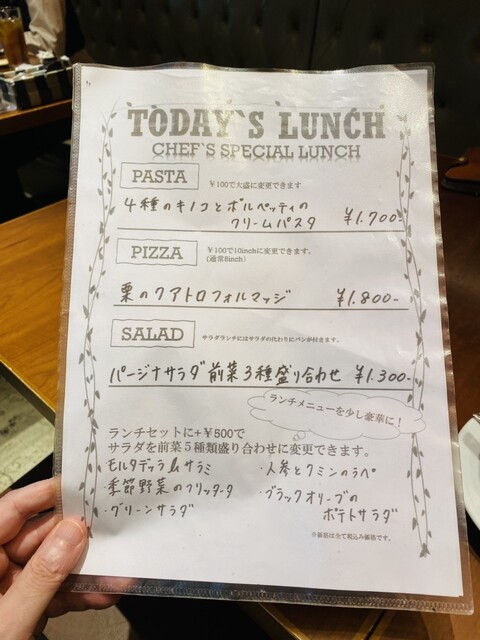 TODAY`S LUNCH
CHEF`S SPECIAL LUNCH
PASTA
¥100で大盛に変更できます
4種のキノコとポルペッティの
クリームパスタ ¥1.700-
PIZZA
¥100で10inchに変更できます。
(通常8inch)
栗のクアトロフォルマッジ ¥1.800-
SALAD
サラダランチにはサラダの代わりにパンが付きます。
パージナサラダ 前菜3種盛り合わせ ¥1.300-
ランチメニューを少し豪華に！
ランチセットに+¥500で
サラダを前菜5種類盛り合わせに変更できます。
モルタデッラ ハムサラミ
・季節野菜のフリッタータ
・グリーンサラダ
・人参とクミンのラペ
・ブラックオリーブの
ポテトサラダ
※価格は全て税込み価格です。